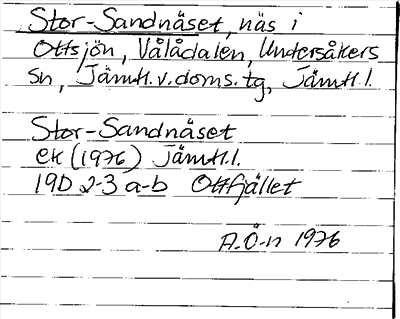 Stor-Sandnäset, näs i
Ottsjön, Vålådalen, Undersåkers
sn, Jämtl.v.doms.tg, Jämtl.l.
Stor-Sandnäset
ek (1976) Jämtl.l.
19D 2-3 a-b Ottfjället
A.Ö-n 1976